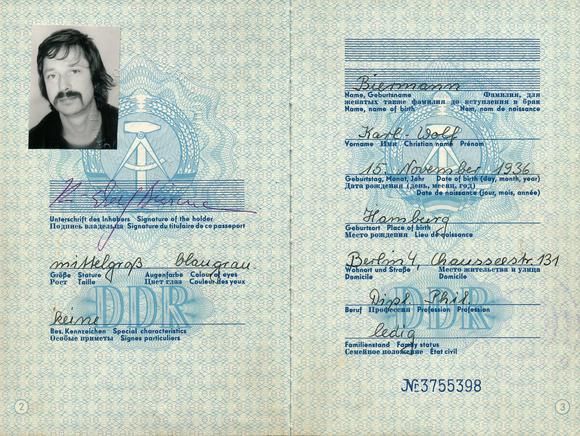 Unterschrift des Inhabers Signature of the holder
Подпись владельца Signature du titulaire de ce passeport
mittelgroß blaugrau
Größe Stature Augenfarbe Colour of eyes
Рост Taille Цвет глаз Couleur des yeux
DDR
keine
Bes. Kennzeichen Special characteristics
Особые приметы Signes particuliers
2
Biermann
Name, Geburtsname Фамилия, для
женатых также фамилия до вступления в брак
Name, name of birth Nom, nom de naissance
Karl-Wolf
Vorname Имя Christian name Prénom
15. November 1936
Geburtstag, Monat, Jahr Date of birth (day, month, year)
Дата рождения (день, месяц, год)
Date de naissance (jour, mois, année)
Hamburg
Geburtsort Place of birth
Место рождения Lieu de naissance
Berlin 4, Chausseestr. 131
Wohnort und Straße Место жительства и улица
Domicile Domicile
Dipl. Phil.
Beruf Профессия Profession Profession
DDR
ledig
Familienstand Family status
Семейное положение État civil
№3755398
3